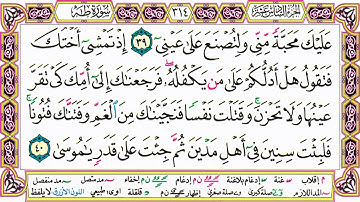 الجزء السادس عشر ٣١٤ سورة طه
عَلَيْكَ مَحَبَّةً مِّنِّى وَلِتُصْنَعَ عَلَىٰ عَيْنِىٓ ٣٩ إِذْ تَمْشِىٓ أُخْتُكَ
فَتَقُولُ هَلْ أَدُلُّكُمْ عَلَىٰ مَن يَكْفُلُهُۥ فَرَجَعْنَٰكَ إِلَىٰٓ أُمِّكَ كَىْ تَقَرَّ
عَيْنُهَا وَلَا تَحْزَنَ وَقَتَلْتَ نَفْسًا فَنَجَّيْنَٰكَ مِنَ ٱلْغَمِّ وَفَتَنَّٰكَ فُتُونًا
فَلَبِثْتَ سِنِينَ فِىٓ أَهْلِ مَدْيَنَ ثُمَّ جِئْتَ عَلَىٰ قَدَرٍ يَٰمُوسَىٰ ٤٠